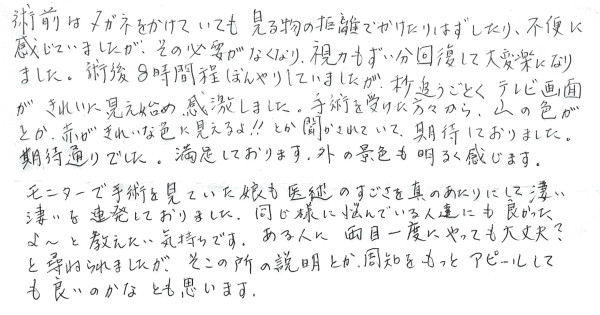 術前はメガネをかけていても見る物の距離でかけたりはずしたり、不便に
感じていましたが、その必要がなくなり、視力もずい分回復して大変楽になり
ました。術後8時間程ぼんやりしていましたが、秒追うごとくテレビ画面
がきれいに見え始め感激しました。手術を受けた方々から、山の色が
とか、赤がきれいな色に見えるよ!!とか聞かされていて、期待しておりました。
期待通りでした。満足しております。外の景色も明るく感じます。
モニターで手術を見ていた娘も医療のすごさを真のあたりにして凄い
凄いを連発しておりました。同じ様に悩んでいる人達にも良かった
よ〜と教えたい気持ちです。ある人に両目一度にやっても大丈夫?
と尋ねられましたが、そこの所の説明とか、周知をもっとアピールして
も良いのかなとも思います。